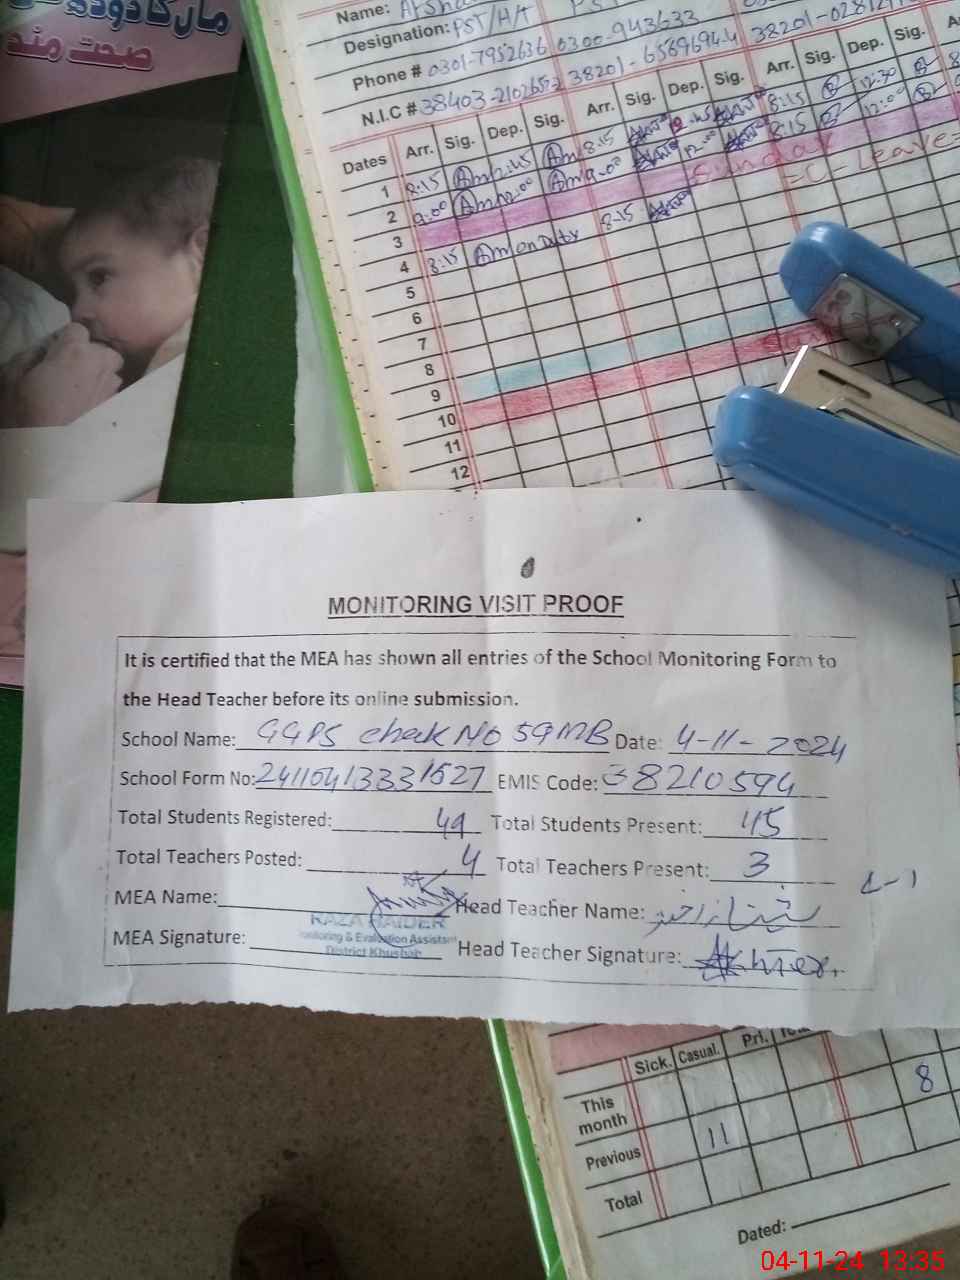 ماں کا دودھ
صحت مند
Name: Arsha
Designation: PST/H/T
Phone # 0301-7952636 0300-943633
N.I.C # 38403-2102652 38201-6569694-4 38201-02812
Dates Arr. Sig. Dep. Sig. Arr. Sig. Dep. Sig. Arr. Sig. Dep. Sig.
1 8:15 Am 12:45 Am 8:15 12:45 8:15 12:30
2 9:00 Am 12:00 Am 9:00 12:00 8:15 12:00
3 Sunday =C=Leave=
4 8:15 Am on Duty 8:15
5
6
7
8
9
10
11
12
MONITORING VISIT PROOF
It is certified that the MEA has shown all entries of the School Monitoring Form to
the Head Teacher before its online submission.
School Name: GGPS chak No 59MB Date: 4-11-2024
School Form No: 24110413331527 EMIS Code: 38210594
Total Students Registered: 49 Total Students Present: 45
Total Teachers Posted: 4 Total Teachers Present: 3
L-1
MEA Name: Head Teacher Name:
RAZA HAIDER
Monitoring & Evaluation Assistant
District Khushab
MEA Signature: Head Teacher Signature:
Sick. Casual. Pri. Total
This month 8
Previous 11
Total
Dated:
04-11-24 13:35